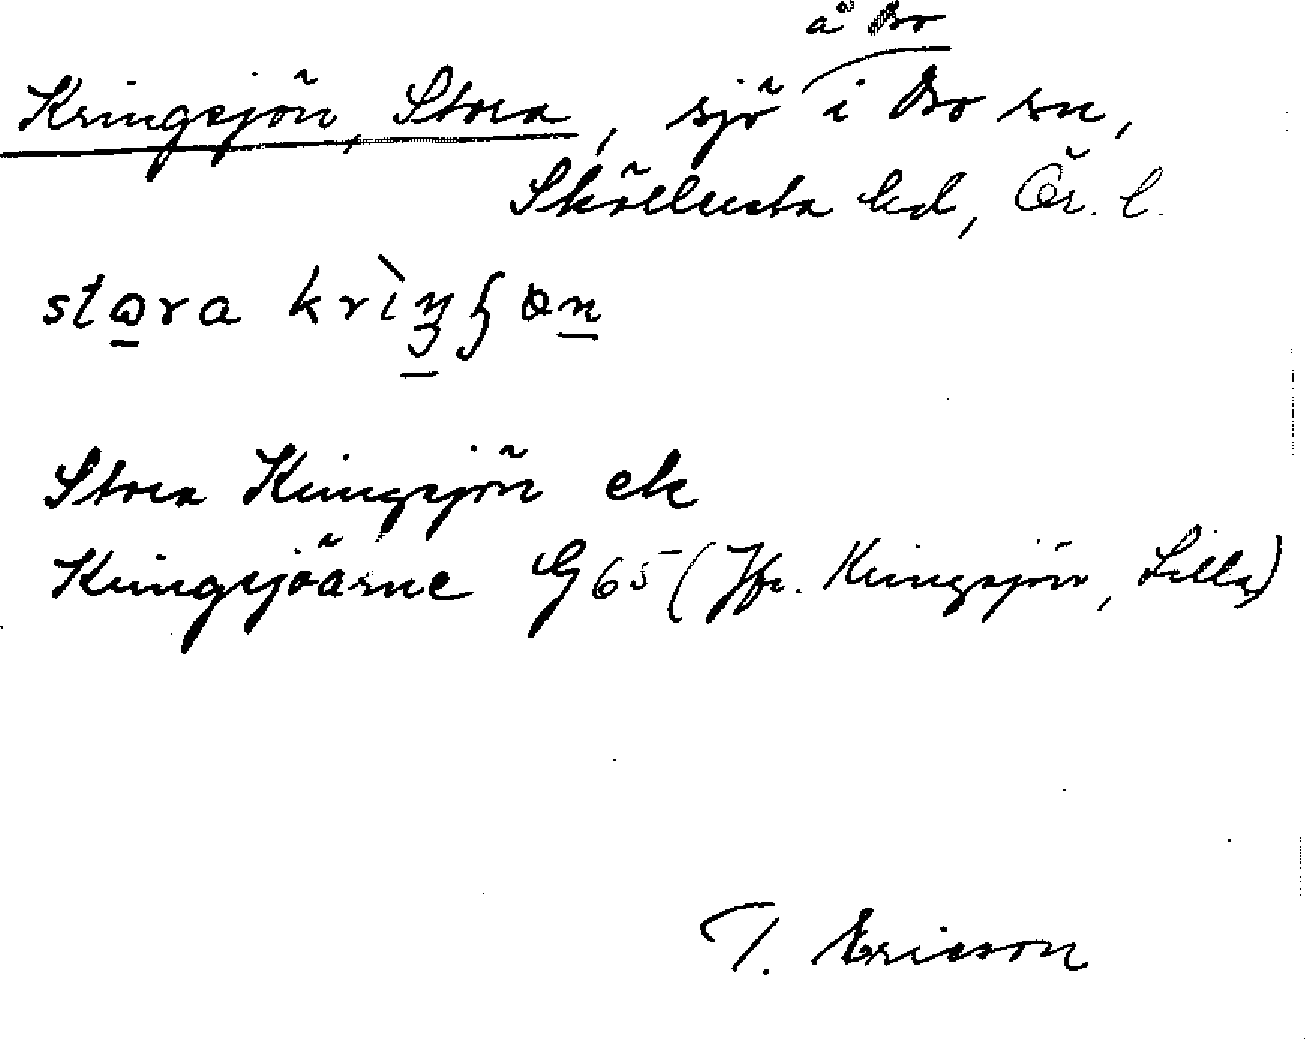 å Bo
Kringsjön, Stora, sjö i Bo sn,
Sköllersta hd, Ör. l.
stora
Stora Kringsjön ek
Kringsjöarne G 65 (Jfr. Kringsjön, Lilla)
T. Ericson